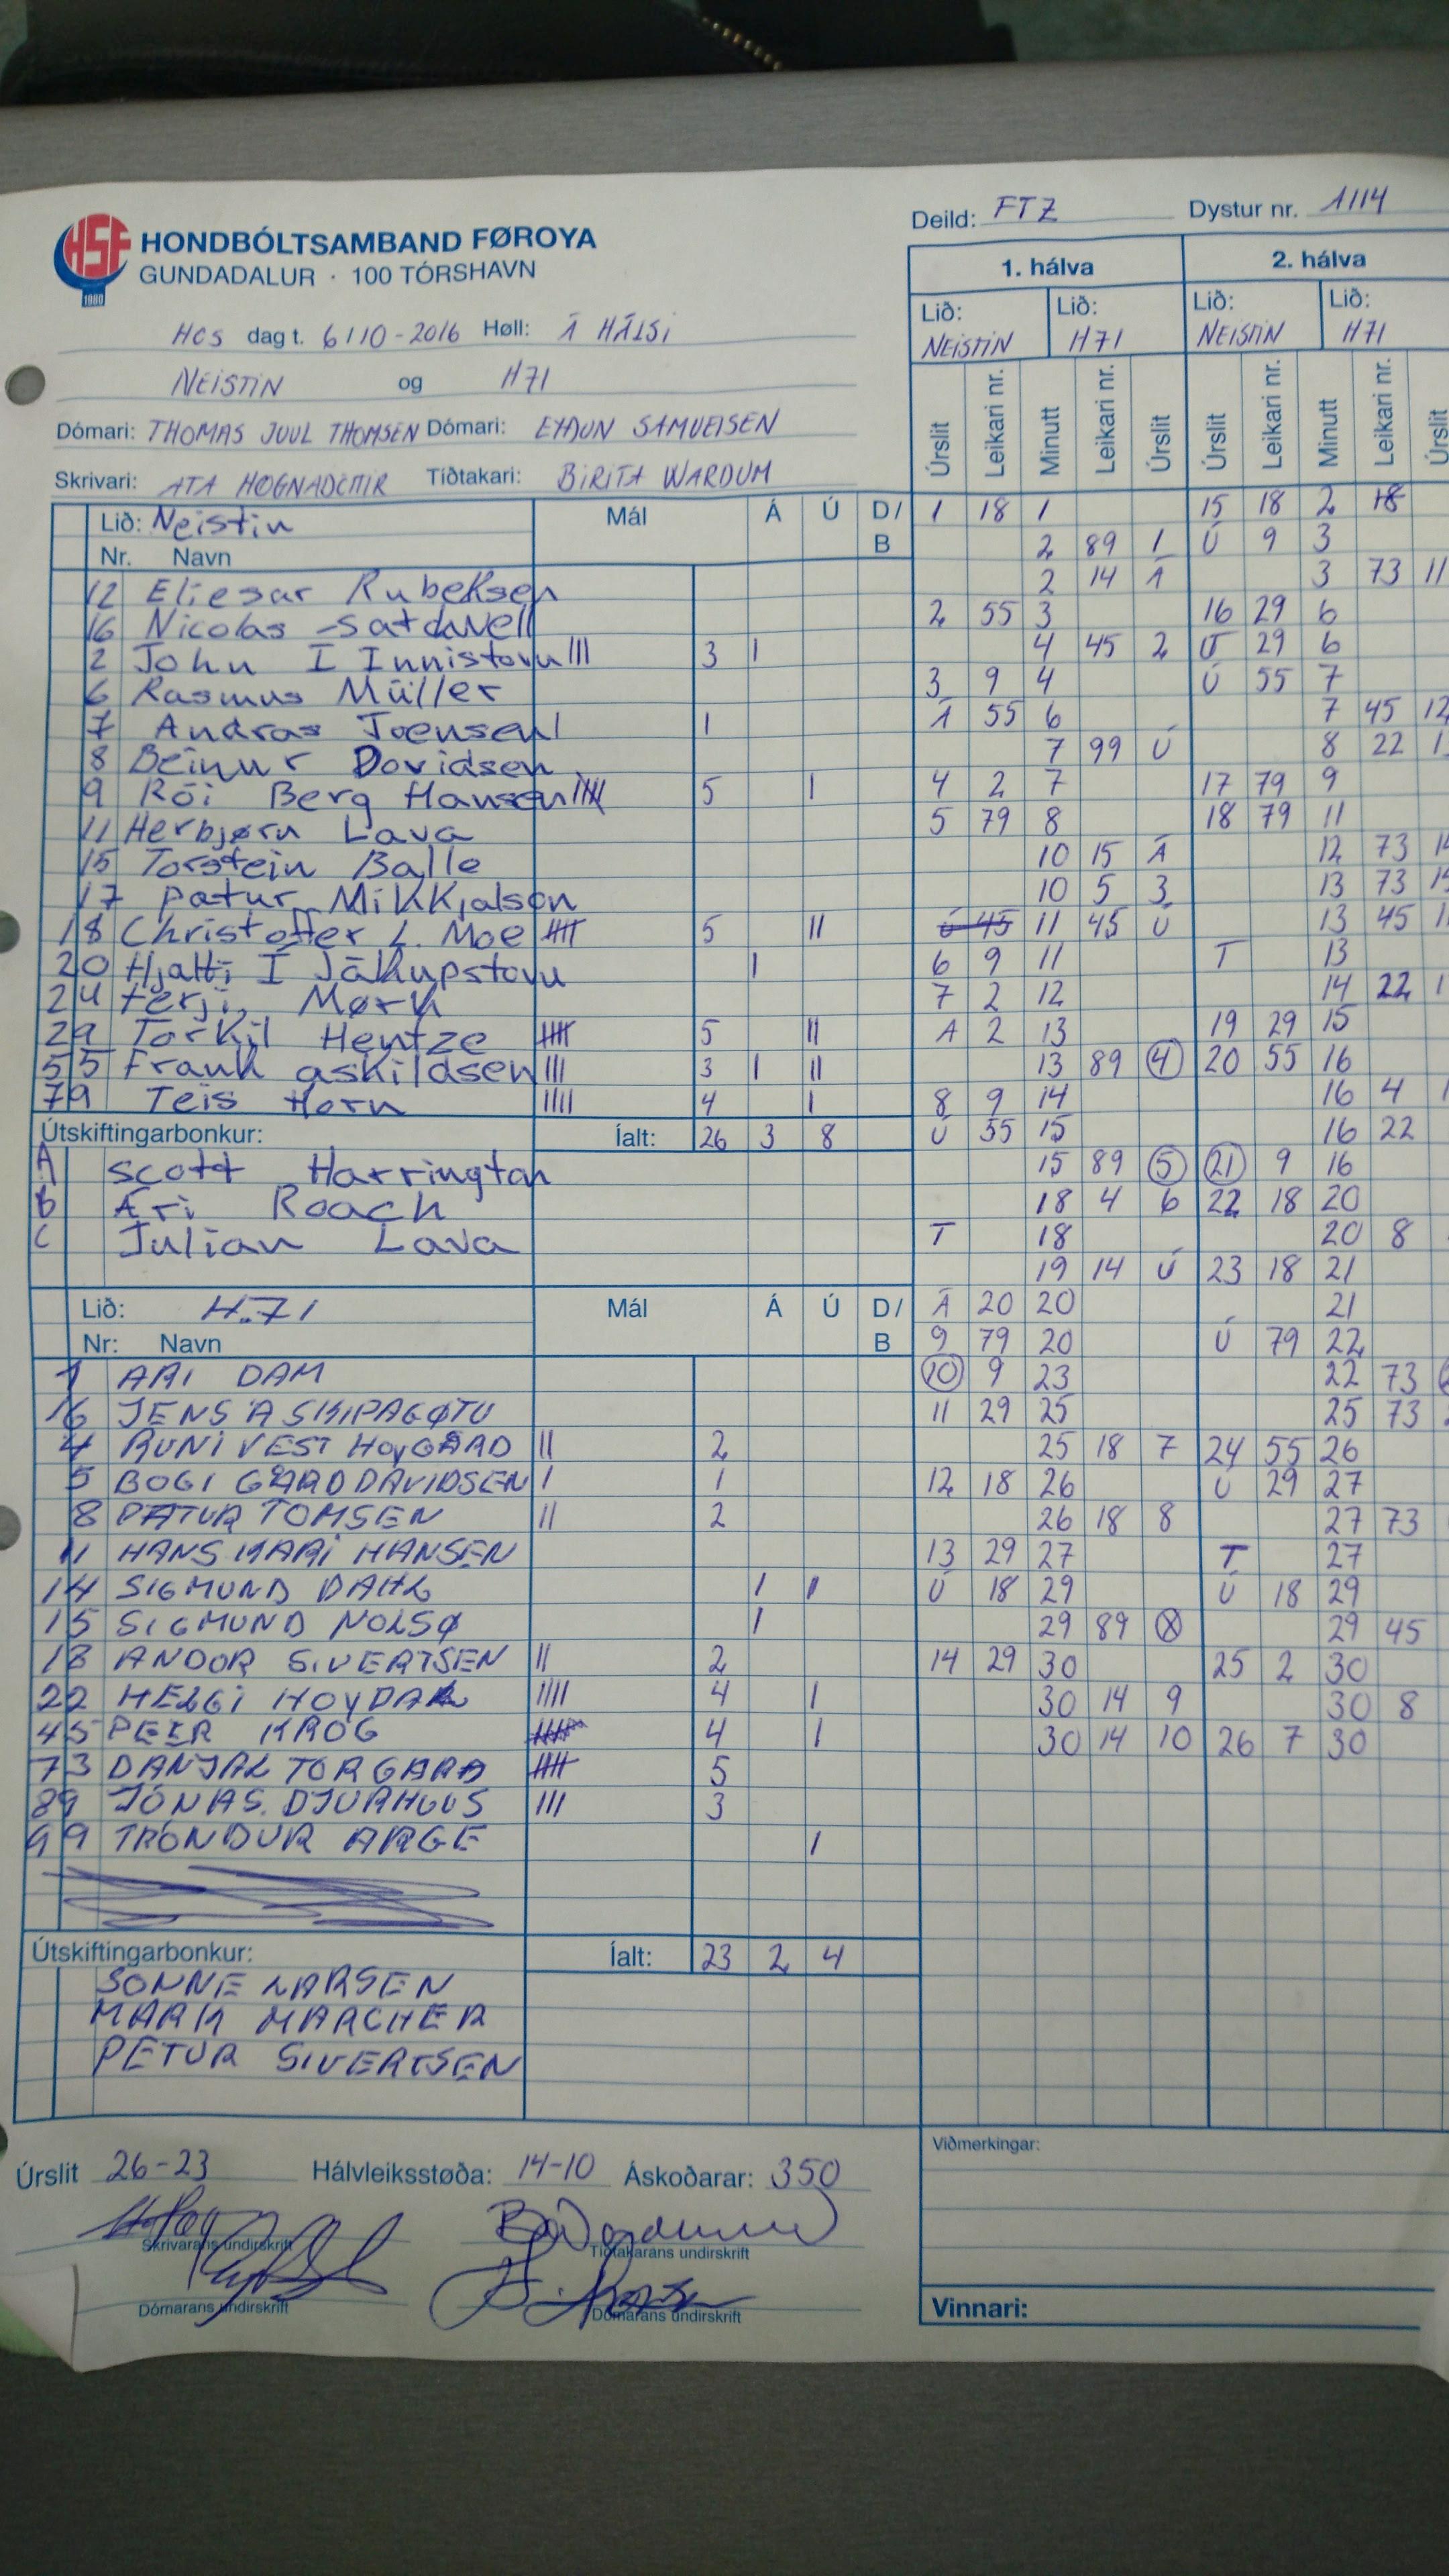 HSF
1980
HONDBÓLTSAMBAND FØROYA
GUNDADALUR · 100 TÓRSHAVN
HCS dag t. 6/10-2016 Høll: Á HÁLSI
NEISTIN og H71
Dómari: THOMAS JUUL THOMSEN Dómari: EYÐUN SAMUELSEN
Skrivari: Tíðtakari: BIRITA WARDUM
Deild: Dystur nr. 1114
1. hálva 2. hálva
Lið: Lið: Lið: Lið:
NEISTIN H71 NEISTIN H71
Úrslit Leikari nr. Minutt Leikari nr. Úrslit Úrslit Leikari nr. Minutt Leikari nr. Úrslit
Lið: Neistin Mál Á Ú D/
Nr. Navn B
12 Eliesar Rubeksen
16 Nicolas
2 John Í Innistovu III 3 I
6 Rasmus Müller
7 Andras Joensen I 1
8 Beinur Davidsen
9 Rói Berg Hansen IIII 5 I
11 Herbjørn Lava
15 Torstein Balle
17 Patur Mikkjalson
18 Christoffer L. Moe IIII 5 II
20 Hjalti Í Jákupstovu I
24 Terji Mørk
29 Torkil Hentze IIII 5 II
55 Frank askildsen III 3 I II
79 Teis Horn IIII 4 I
Útskiftingarbonkur: Íalt: 26 3 8
A Scott Harrington
B Ari Roach
C Julian Lava
Lið: H.71 Mál Á Ú D/
Nr: Navn B
1 ARI DAM
16 JENS Á SKIPAGØTU
4 RUNI VEST HOYGÅRD II 2
5 BOGI GÅRD DAVIDSEN I 1
8 PÆTUR TOMSEN II 2
11 HANS KARI HANSEN
14 SIGMUND DAHL I I
15 SIGMUND NOLSØ I
18 ANDOR SIVERTSEN II 2
22 HELGI HOYDAL IIII 4 I
45 PEER KROG 4 I
73 DANJAL TORGARD IIII 5
89 JÓNAS DJURHUUS III 3
99 TRÓNDUR ARGE I
Útskiftingarbonkur: Íalt: 23 2 4
SONNE LARSEN
MARK MARCHER
PETUR SIVERTSEN
1 18 1 15 18 2 18
2 89 1 Ú 9 3
2 14 Á 3 73 11
2 55 3 16 29 6
4 45 2 Ú 29 6
3 9 4 Ú 55 7
Á 55 6 7 45 12
7 99 Ú 8 22
4 2 7 17 79 9
5 79 8 18 79 11
10 15 Á 12 73
10 5 3 13 73
Ú 45 11 45 Ú 13 45
6 9 11 T 13
7 2 12 14 22
Á 2 13 19 29 15
13 89 4 20 55 16
8 9 14 16 4
Ú 55 15 16 22
15 89 5 21 9 16
18 4 6 22 18 20
T 18 20 8
19 14 Ú 23 18 21
Á 20 20 21
9 79 20 Ú 79 22
10 9 23 22 73
11 29 25 25 73
25 18 7 24 55 26
12 18 26 Ú 29 27
26 18 8 27 73
13 29 27 T 27
Ú 18 29 Ú 18 29
29 89 29 45
14 29 30 25 2 30
30 14 9 30 8
30 14 10 26 7 30
Úrslit 26-23 Hálvleiksstøða: 14-10 Áskoðarar: 350
Skrivarans undirskrift Tíðtakarans undirskrift
Dómarans undirskrift Dómarans undirskrift
Viðmerkingar:
Vinnari: